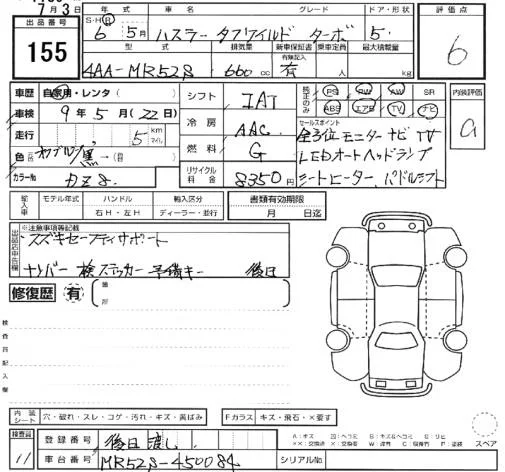 7月3日
出品番号 155
年式 車名 グレード ドア・形状 評価点
S・H・R 6年 5月 ハスラー タフワイルド ターボ 5 6
型式 排気量 新車保証書 乗車定員 最大積載量
有無記入
4AA-MR52S 660cc 有 人 kg
車歴 自家用・レンタ( )
車検 9年5月(22日)
走行 5 km マイル
色 黒
カラーNo. DZ8.
シフト IAT
冷房 AAC
燃料 G
リサイクル料金 8350円
純正のみ PS PW AW SR
ABS エアB TV ナビ
内装評価 a
セールスポイント
全方位モニターナビTV
LEDオートヘッドランプ
シートヒーター、パドルシフト
輸入車 モデル年式 ハンドル 輸入区分 書類有効期限
年 右H・左H ディーラー・並行 月 日迄
※注意事項等記載
スズキセーフティサポート
ナンバー 検ステッカー 予備キー 後日
修復歴 有 箇所
検査員記入欄
内装シート 穴・破れ・スレ・コゲ・汚れ・キズ・黄ばみ Fガラス キズ・飛石・×要す
スペア
検査員 11
登録番号 後日渡し
車台番号 MR52S-450084 シリアルNo.